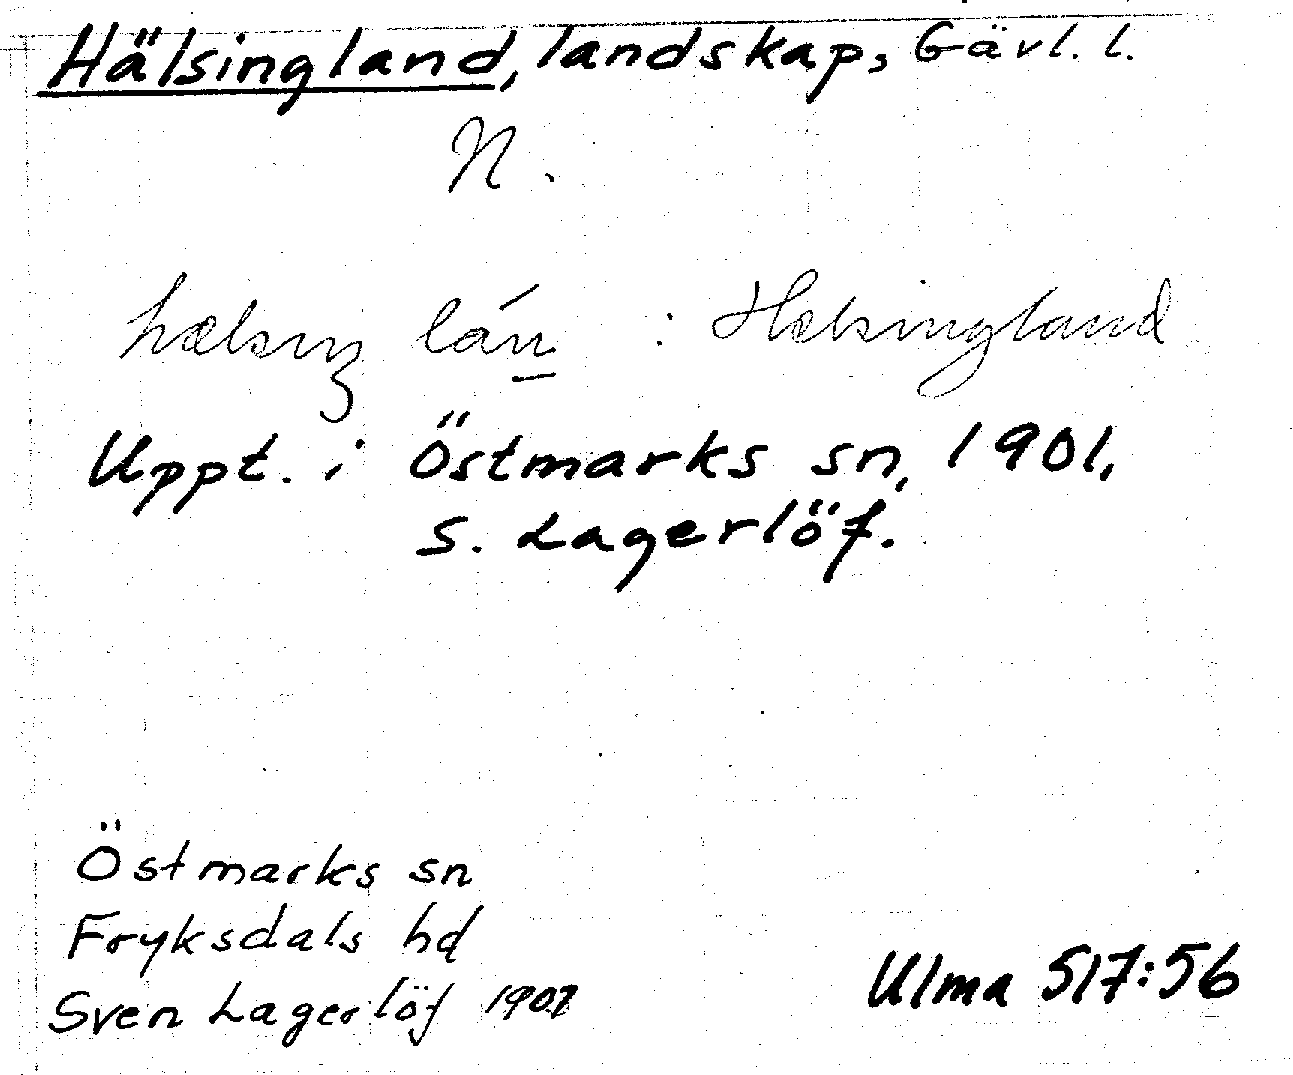 Hälsingland, landskap, Gävl. l.
N.
hælsiŋ lán : Helsingland
Uppt. i Östmarks sn, 1901,
S. Lagerlöf.
Östmarks sn
Fryksdals hd
Sven Lagerlöf 1901
Ulma 517:56